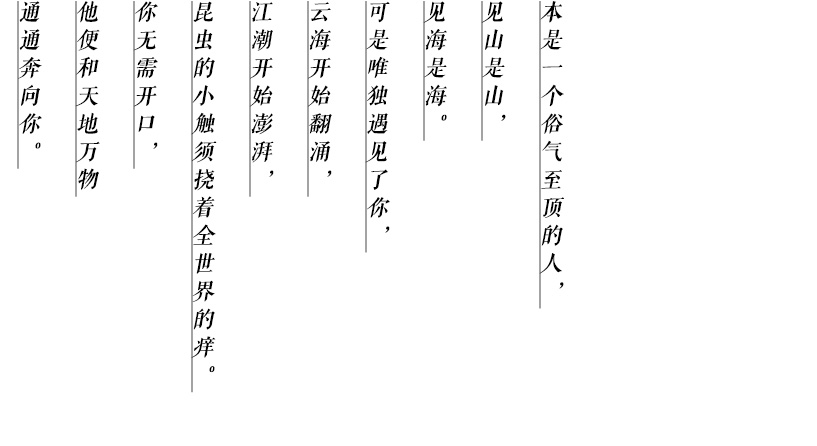 本是一个俗气至顶的人，
见山是山，
见海是海。
可是唯独遇见了你，
云海开始翻涌，
江潮开始澎湃，
昆虫的小触须挠着全世界的痒。
你无需开口，
他便和天地万物
通通奔向你。